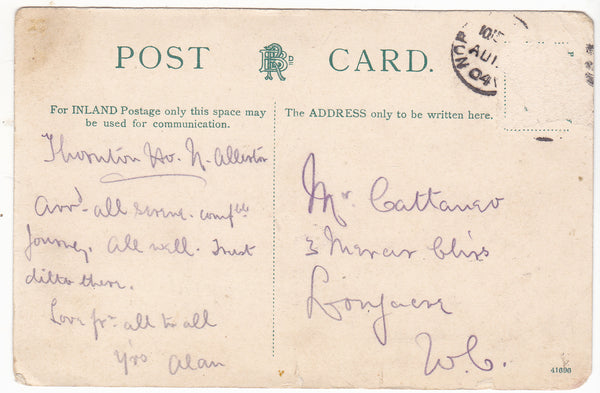 POST CARD.
For INLAND Postage only this space may
be used for communication.
The ADDRESS only to be written here.
Thornton Ho. N. Allerton
Arrd. all serene. comfble
Journey. All well. Trust
ditto there.
Love fr. all to all
Yrs Alan
Mr Cattaneo
3 Mercer
Longacre
W.C.
1015
AU
04
41696